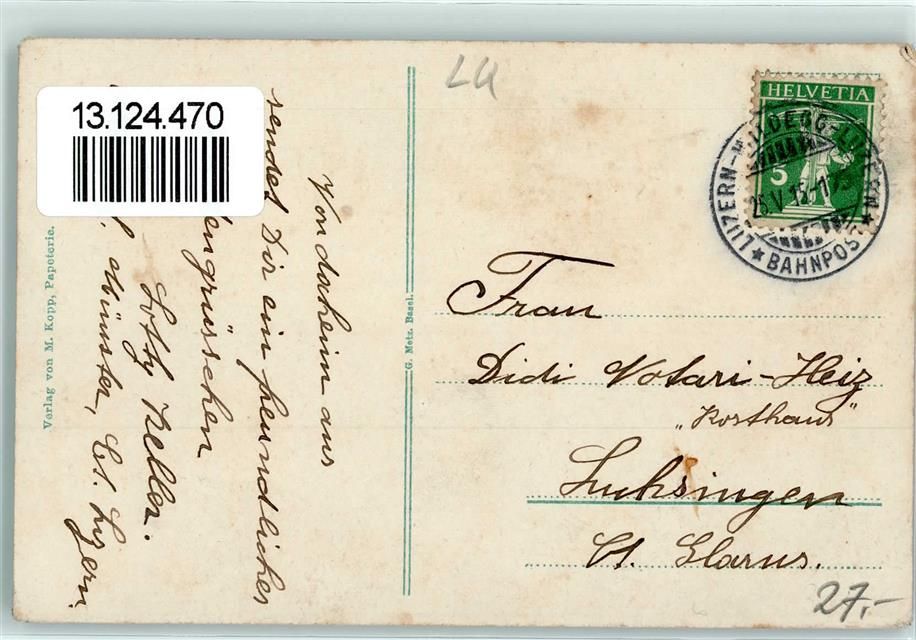 13.124.470
LU
HELVETIA
5
LUZERN-WILDEGG-LUZERN
25.V.15-1
BAHNPOST
Von daheim aus
sendet Dir ein freundliches
grüsschen
Lotty Keller.
Münster, Ct. Luzern.
Verlag von M. Kopp, Papeterie.
G. Metz. Basel.
Frau
Didi Votari-Heiz
„Kosthaus"
Luchsingen
Ct. Glarus.
27.-